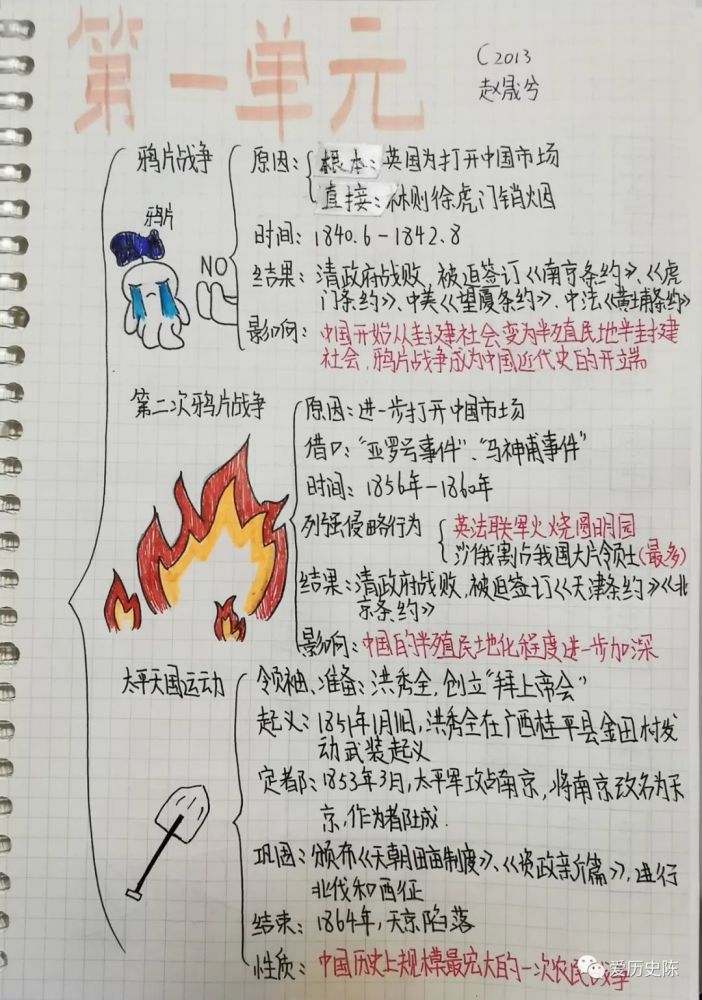 第一单元
C2013
赵晟兮
鸦片战争
原因：
根本：英国为打开中国市场
直接：林则徐虎门销烟
鸦片
NO
时间：1840.6-1842.8
结果：清政府战败，被迫签订《南京条约》、《虎
门条约》、中美《望厦条约》、中法《黄埔条约》
影响：中国开始从封建社会变为半殖民地半封建
社会，鸦片战争成为中国近代史的开端
第二次鸦片战争
原因：进一步打开中国市场
借口：“亚罗号事件”、“马神甫事件”
时间：1856年-1860年
列强侵略行为
英法联军火烧圆明园
沙俄割占我国大片领土(最多)
结果：清政府战败，被迫签订《天津条约》《北
京条约》
影响：中国的半殖民地化程度进一步加深
太平天国运动
领袖、准备：洪秀全，创立“拜上帝会”
起义：1851年1月11日，洪秀全在广西桂平县金田村发
动武装起义
定都：1853年3月，太平军攻占南京，将南京改名为天
京，作为都城.
巩固：颁布《天朝田亩制度》、《资政新篇》，进行
北伐和西征
结束：1864年，天京陷落
性质：中国历史上规模最宏大的一次农民战争
爱历史陈